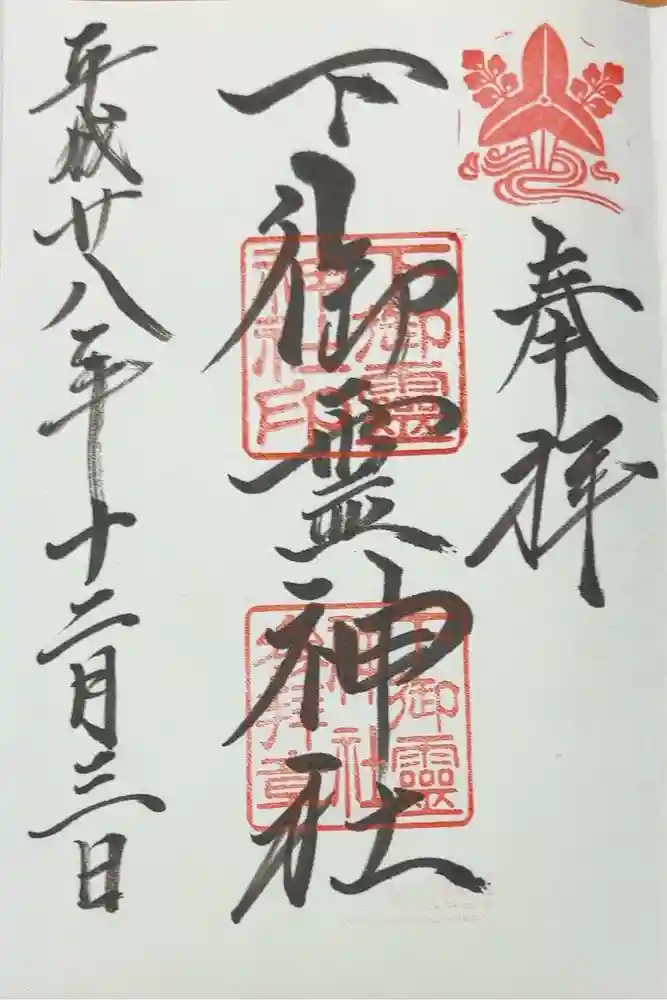 奉拝
下御霊神社
下御靈神社印
下御靈神社参拝章
平成廿八年十二月三日